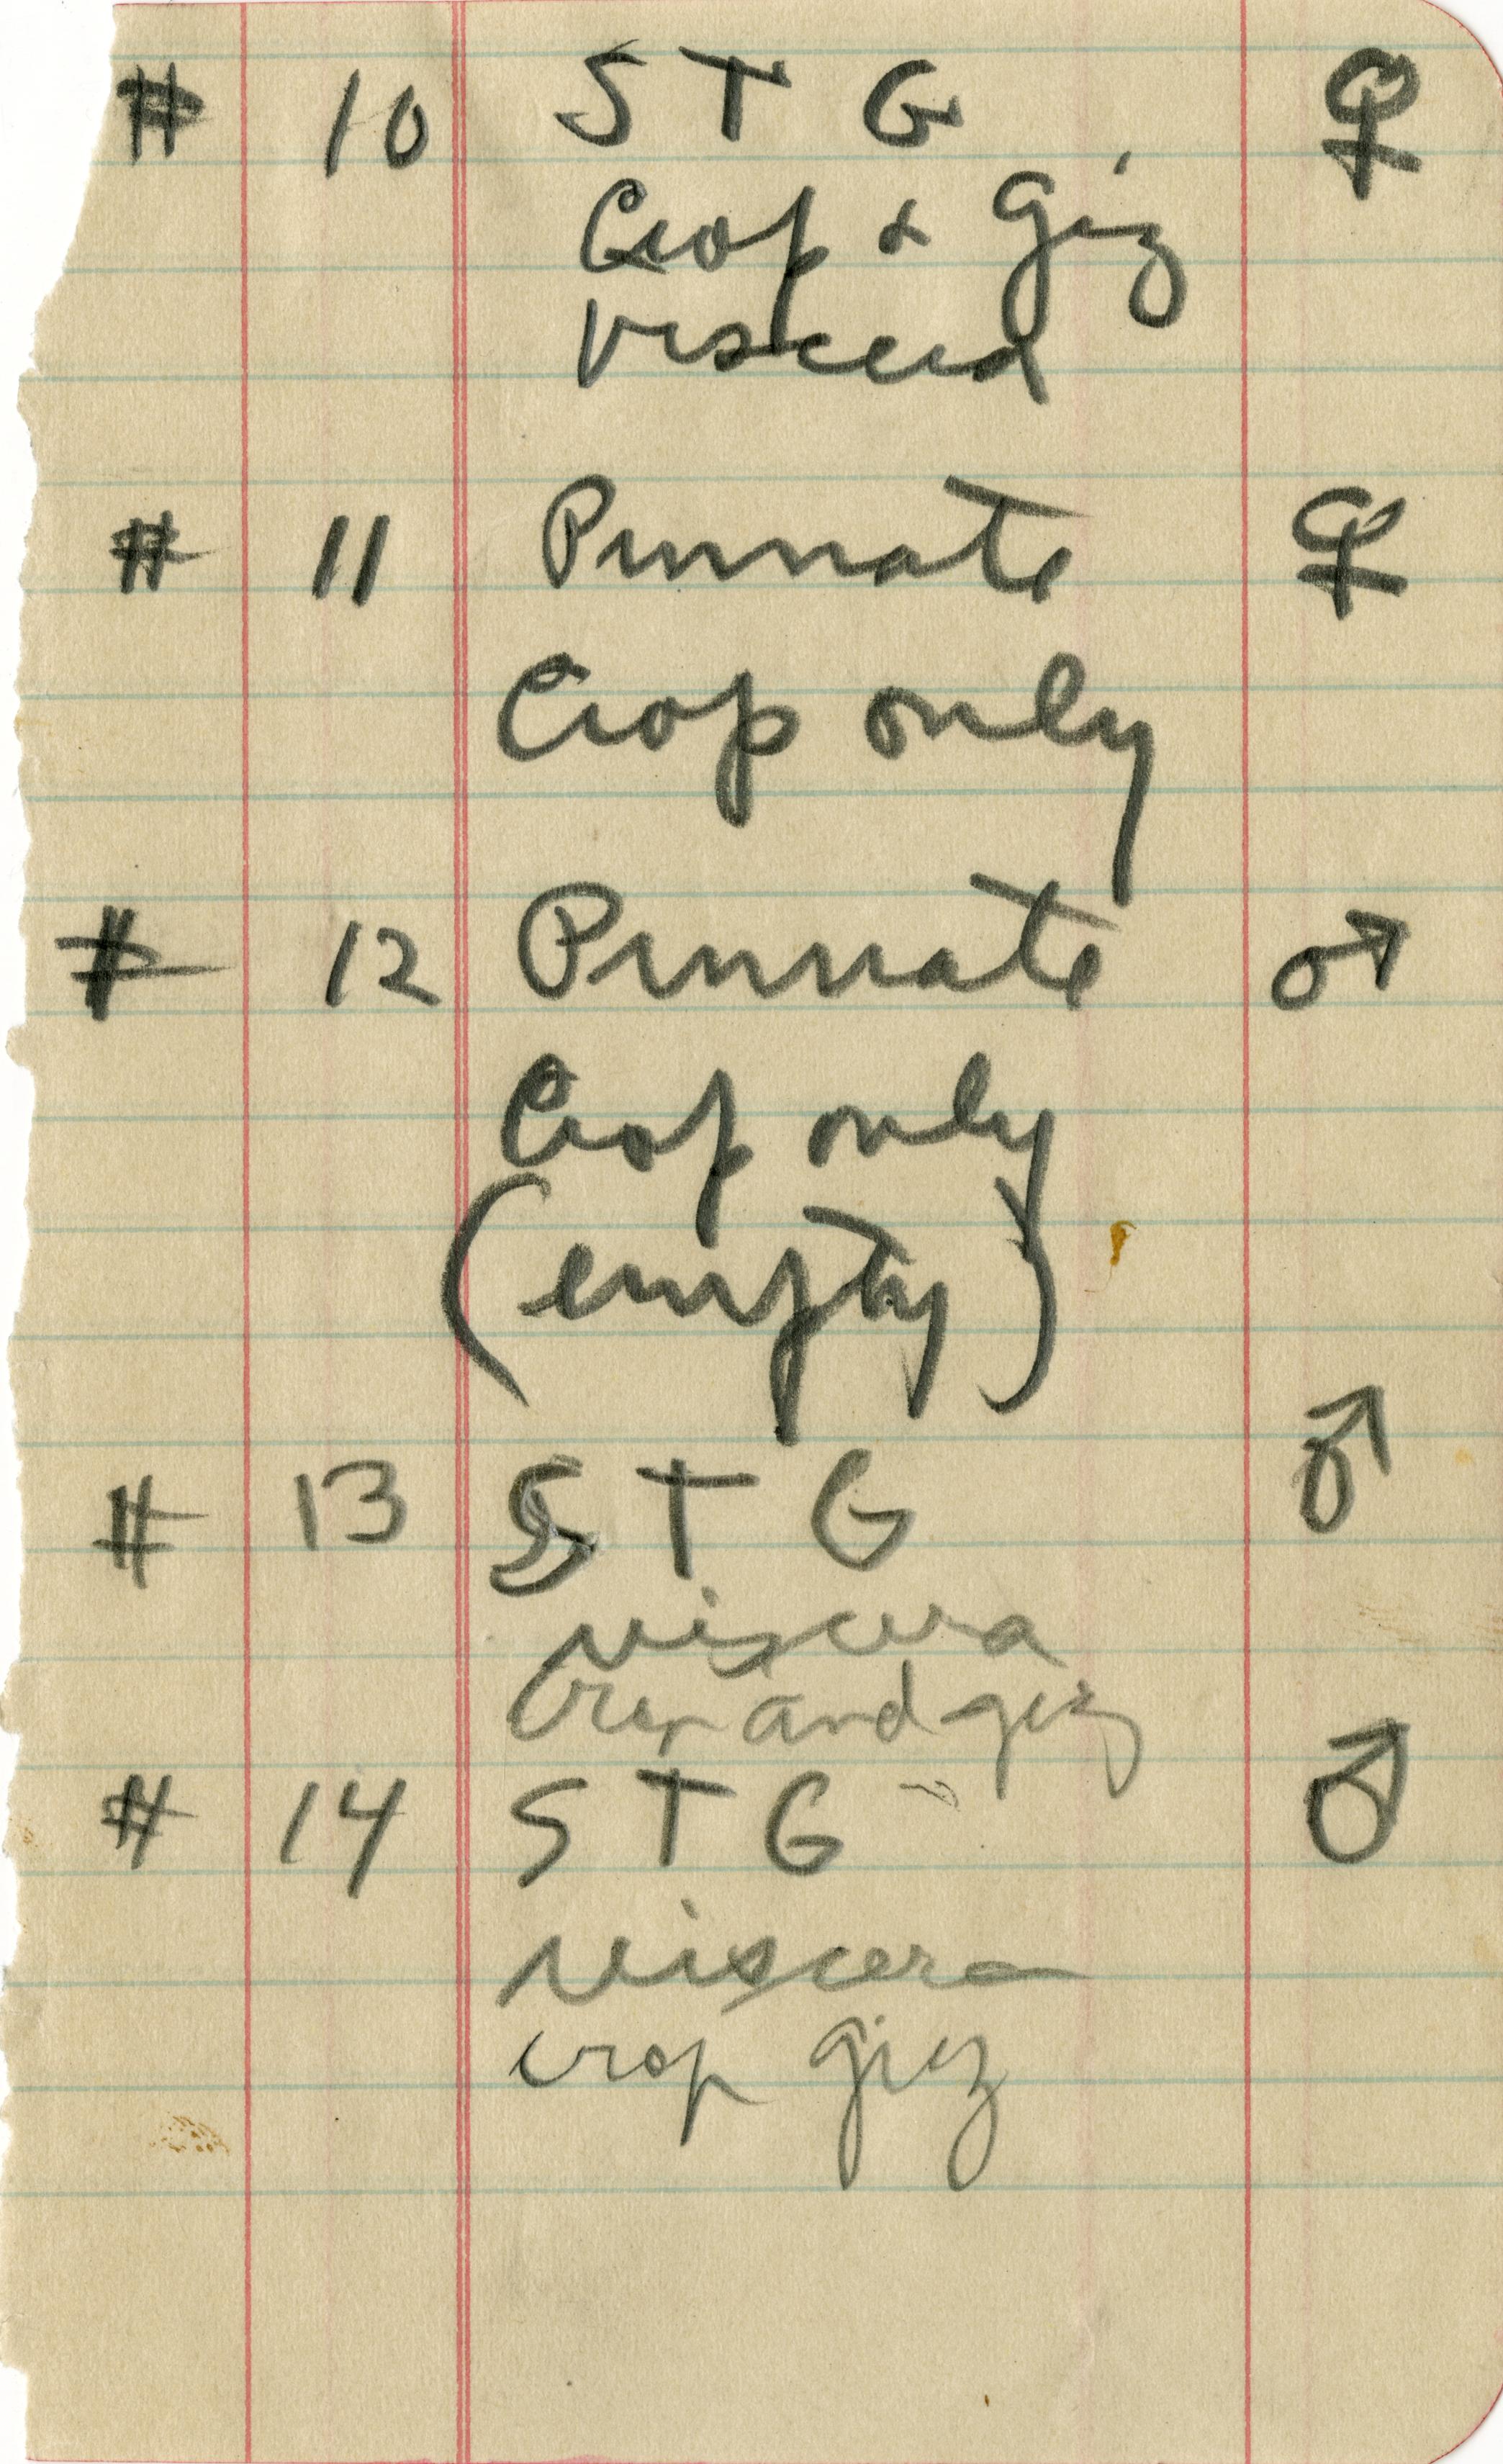 # 10 S T G ♀
Crop & Giz
Viscera
# 11 Pinnate ♀
Crop only
# 12 Pinnate ♂
Crop only
(empty)
# 13 S T G ♂
viscera
Crop and giz
# 14 S T G ♂
viscera
crop giz